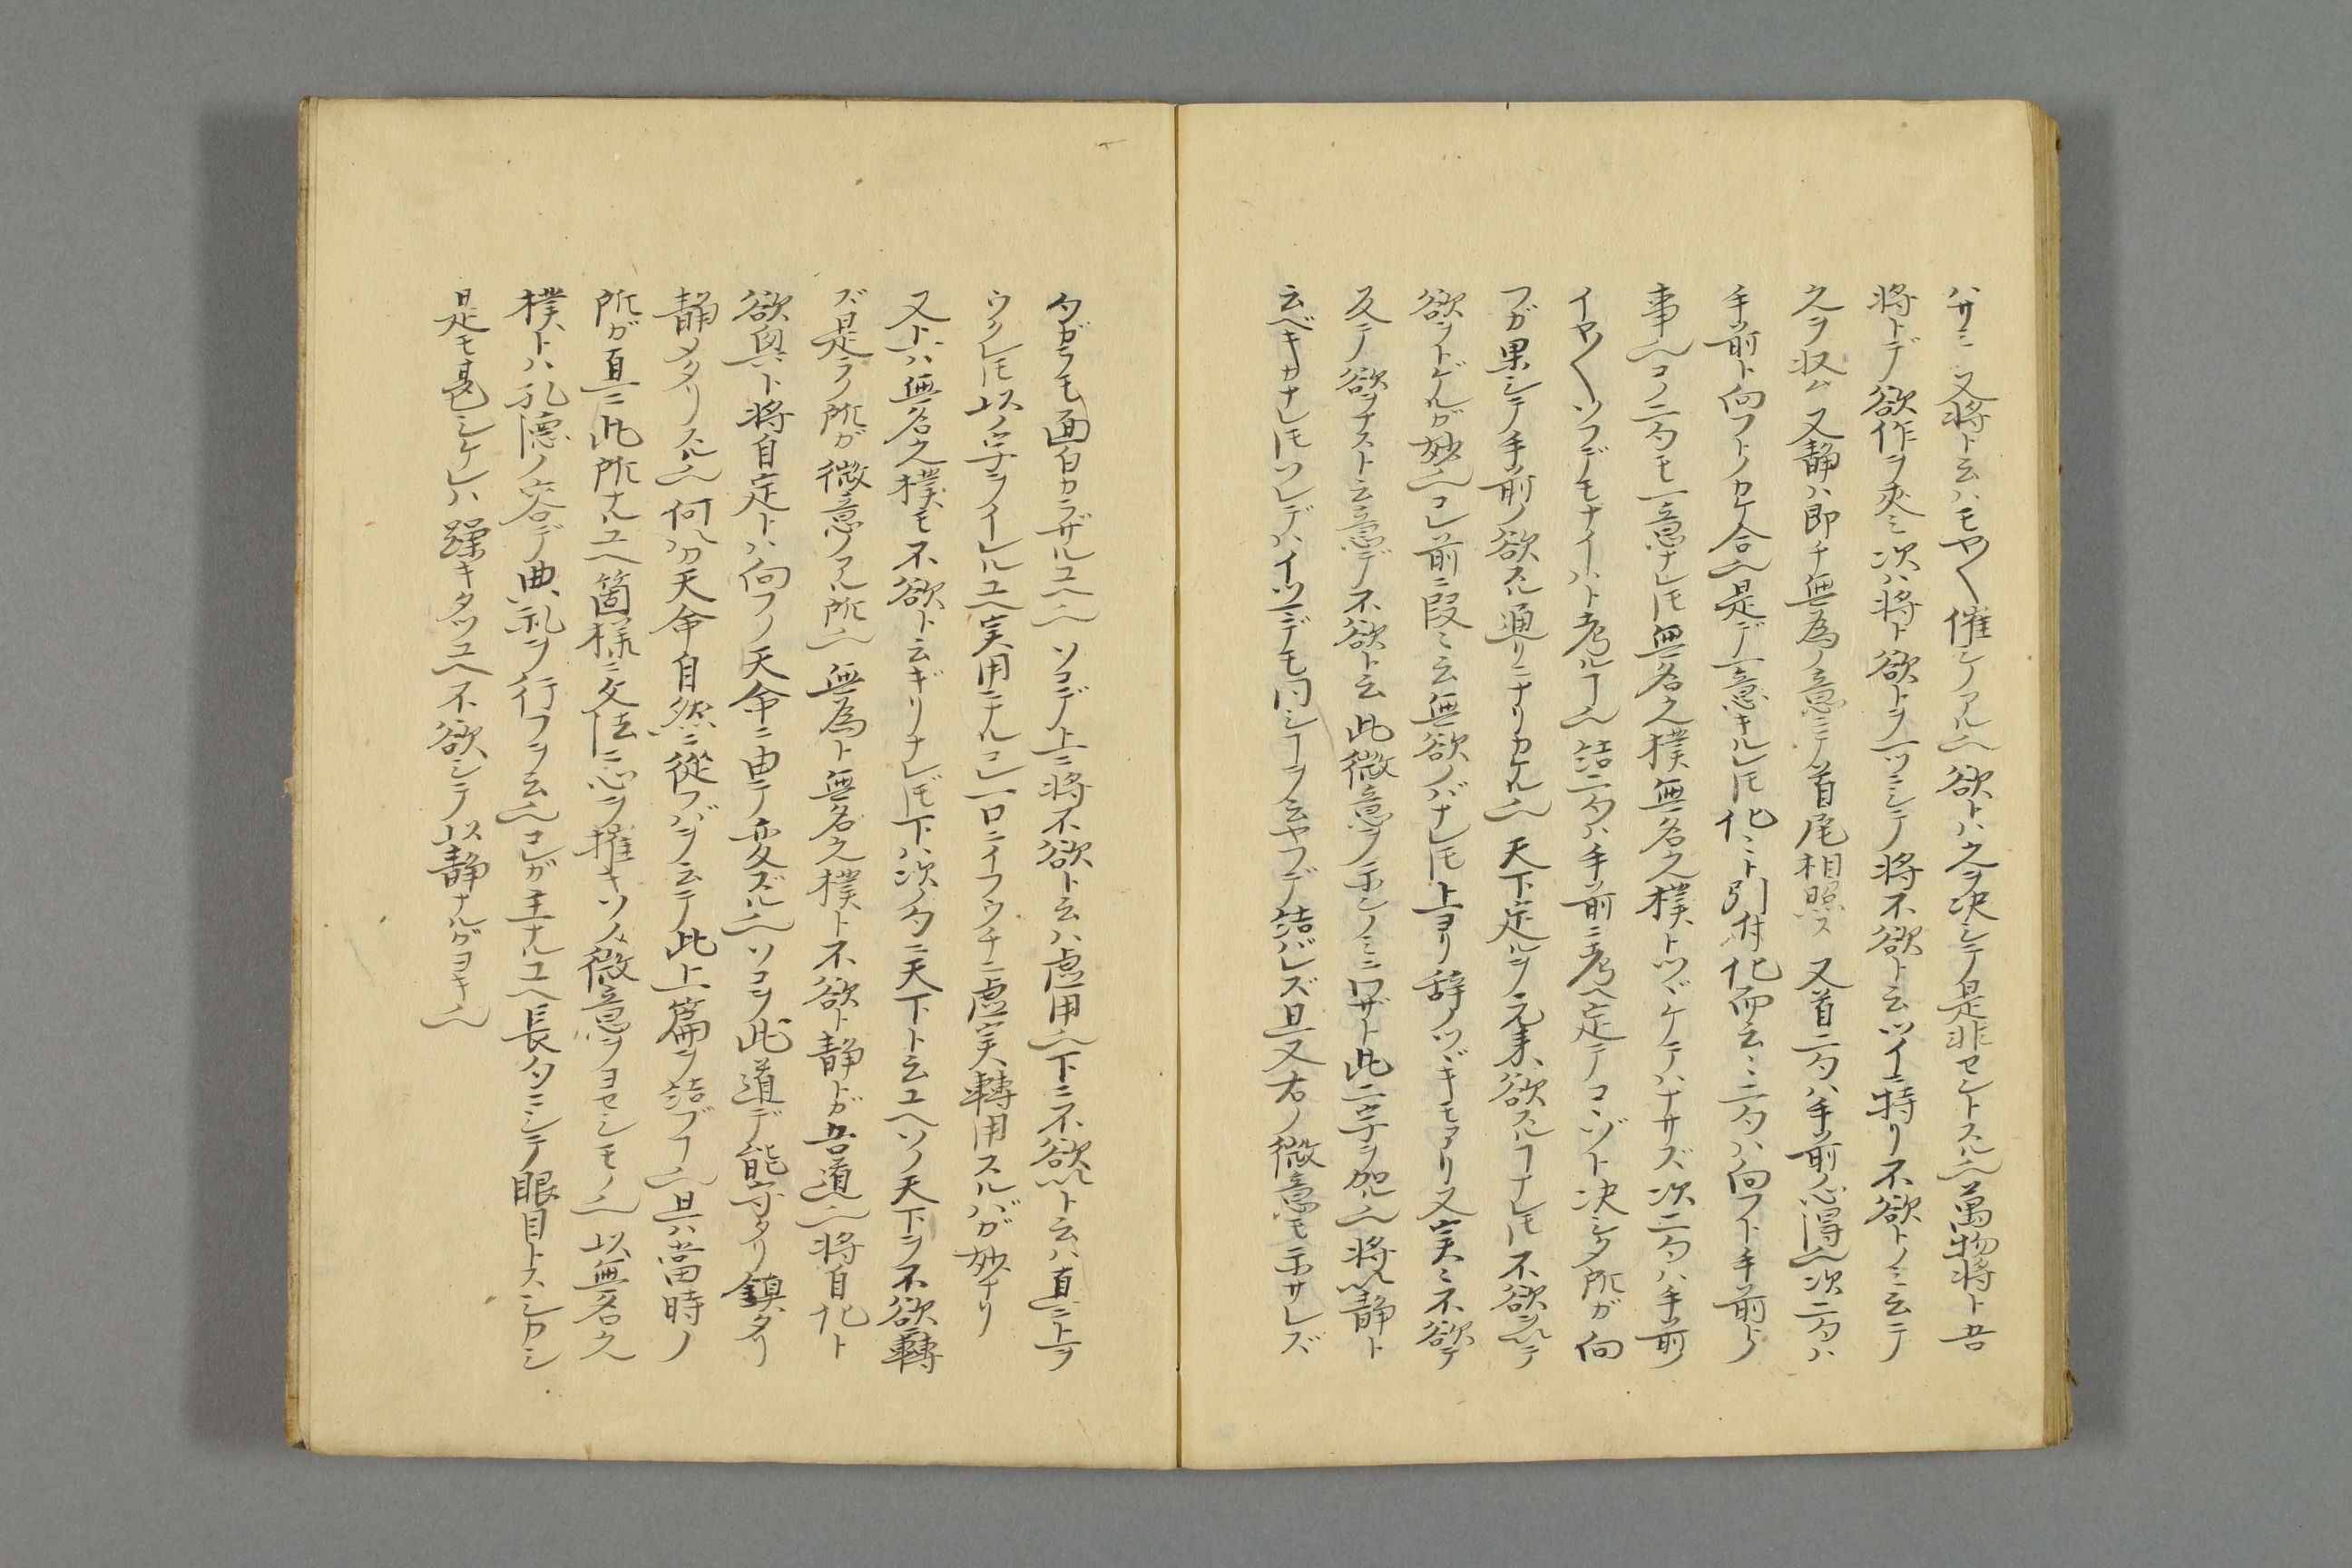 ハサミ又将ト云ハモヤ〱催シアル也欲トハ之ヲ決シテ是非セントスル也萬物将ト吾
将トデ欲作ヲ夾ミ次ハ将ト欲トヲ一ツニシテ将不欲ト云ツイニ特リ不欲トノミ云テ
之ヲ収ム又静ハ即チ無為ノ意ニテ首尾相照ス又首二句ハ手前ノ心得也次二句ハ
手前ト向フトノカケ合也是デ一意キルレ𪜈化ミト引付化而云ミ二句ハ向フト手前トノ
事也コノ二句モ一意ナレ𪜈無名之樸無名之樸トツヾケテハナサズ次二句ハ手前ノ
イヤ〱ソフデモナイハト考ルヿ也結二句ハ手前ニ考ヘ定テコヽゾト決シタ所ガ向
フガ果シテ手前ノ欲スル通リニナリカケル也天下定ルヲ元来欲スルヿナレ𪜈不欲シテ
欲ヲトゲルガ妙也コレ前ニ段ミ云無欲ノバナレ𪜈上ヨリ辞ノツヾキモアリ又実ミ不欲テ
反テ欲ヲナスト云意デ不欲ト云此微意ヲ示シノミニワザト此二字ヲ加ル也将以静ト
云ベキカナレ𪜈ソレデハイツニデモ同シヿヲ云ヤフデ結バレズ且又右ノ微意モ示サレズ
句ガラモ面白カラザルユヘ也ソコデ上ニ将不欲ト云ハ虚用也下ニ不欲以ト云ハ直ニ上ヲ
ウクレ𪜈以ノ字ヲイレルユヘ実用ニナルコレ一口ニイフウチニ虚実轉用スルバガ妙ナリ
又上ハ無名之樸モ不欲ト云ギリナレ𪜈下ハ次ノ句ニ天下ト云ユヘソノ天下ヲ不欲轉
ズ是ラノ所ガ微意ノアル所也無為ト無名之樸ト不欲ト静トガ吾道也将自化ト
欲與ト将自定トハ向フノ天命ニ由テ変ズル也ソコヲ此道デ能守タリ鎮タリ
静メタリスル也何分天命自然ニ従フバヲ云テ此上篇ヲ結ブヿ也且ハ當時ノ
所ガ直ニ此所ナルユヘ箇様ニ文法ニ心ヲ摧キソノ微意ヲヨセシモノ也以無名之
樸トハ孔徳ノ容デ典礼ヲ行フヲ云也コレガ主ナルユヘ長句ニシテ眼目トスシカシ
是モ甚シケレハ躁キタツユヘ不欲シテ以静ナルガヨキ也